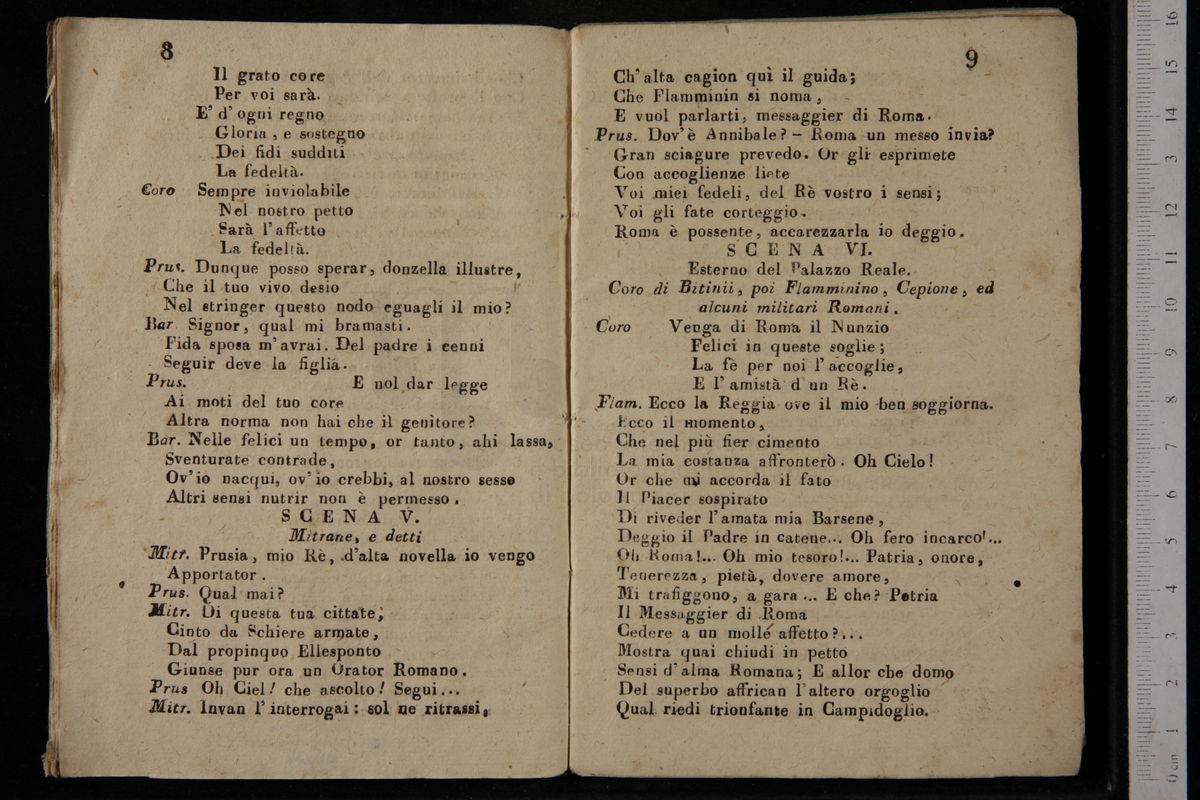 8
Il grato core
Per voi sarà.
E' d' ogni regno
Gloria, e sostegno
Dei fidi sudditi
La fedeltà.
Coro Sempre inviolabile
Nel nostro petto
Sarà l'affetto
La fedeltà.
Prus. Dunque posso sperar, donzella illustre,
Che il tuo vivo desio
Nel stringer questo nodo eguagli il mio?
Bar Signor, qual mi bramasti.
Fida sposa m'avrai. Del padre i cenni
Seguir deve la figlia.
Prus. E nol dar legge
Ai moti del tuo core
Altra norma non hai che il genitore?
Bar. Nelle felici un tempo, or tanto, ahi lassa,
Sventurate contrade,
Ov'io nacqui, ov'io crebbi, al nostro sesso
Altri sensi nutrir non è permesso.
SCENA V.
Mitrane, e detti
Mitr. Prusia, mio Rè, d'alta novella io vengo
Apportator.
Prus. Qual mai?
Mitr. Di questa tua cittate,
Cinto da Schiere armate,
Dal propinquo Ellesponto
Giunse pur ora un Orator Romano.
Prus Oh Ciel! che ascolto! Segui...
Mitr. Invan l'interrogai: sol ne ritrassi,
9
Ch'alta cagion quì il guida;
Che Flamminin si noma,
E vuol parlarti, messaggier di Roma.
Prus. Dov'è Annibale? - Roma un messo invia?
Gran sciagure prevedo. Or gli esprimete
Con accoglienze liete
Voi miei fedeli, del Rè vostro i sensi;
Voi gli fate corteggio.
Roma è possente, accarezzarla io deggio.
SCENA VI.
Esterno del Palazzo Reale.
Coro di Bitinii, poi Flamminino, Cepione, ed
alcuni militari Romani.
Coro Venga di Roma il Nunzio
Felici in queste soglie;
La fè per noi l'accoglie,
E l'amistà d'un Rè.
Flam. Ecco la Reggia ove il mio ben soggiorna.
Ecco il momento,
Che nel più fier cimento
La mia costanza affronterò. Oh Cielo!
Or che mi accorda il fato
Il Piacer sospirato
Di riveder l'amata mia Barsene,
Deggio il Padre in catene... Oh fero incarco!...
Oh Roma!... Oh mio tesoro!... Patria, onore,
Tenerezza, pietà, dovere amore,
Mi trafiggono, a gara ... E che? Patria
Il Messaggier di Roma
Cedere a un molle affetto?...
Mostra quai chiudi in petto
Sensi d'alma Romana; E allor che domo
Del superbo affrican l'altero orgoglio
Qual riedi trionfante in Campidoglio.
0 cm 1 2 3 4 5 6 7 8 9 10 11 12 13 14 15 16